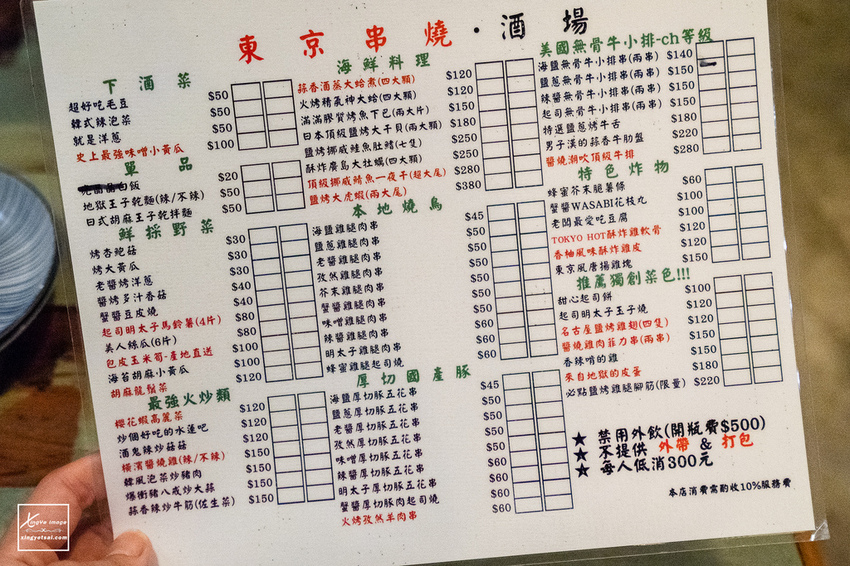 東京串燒·酒場
下酒菜
超好吃毛豆 $50
韓式辣泡菜 $50
就是洋蔥 $50
史上最強味噌小黃瓜 $100
單品
白飯 $20
地獄王子乾麵(辣/不辣) $50
日式胡麻王子乾拌麵 $50
鮮採野菜
烤杏鮑菇 $30
烤大黃瓜 $30
老醬烤洋蔥 $40
醬烤多汁香菇 $40
蟹醬豆皮燒 $40
起司明太子馬鈴薯(4片) $80
美人絲瓜(6片) $80
包皮玉米筍-產地直送 $100
海苔胡麻小黃瓜 $100
胡麻龍鬚菜 $120
最強火炒類
櫻花蝦高麗菜 $120
炒個好吃的水蓮吧 $120
酒鬼辣炒菇菇 $120
橫濱醬燒雞(辣/不辣) $150
韓風泡菜炒豬肉 $150
爆衝豬八戒炒大蒜 $150
蒜香辣炒牛筋(佐生菜) $150
海鮮料理
蒜香酒蒸大蛤煮(四大顆) $120
火烤精氣神大蛤(四大顆) $120
滿滿膠質烤魚下巴(兩大片) $150
日本頂級鹽烤大干貝(兩大顆) $180
鹽烤挪威鮭魚肚鰭(七隻) $250
酥炸廣島大牡蠣(四大顆) $250
頂級挪威鯖魚一夜干(超大尾) $280
鹽烤大虎蝦(兩大尾) $380
本地燒鳥
海鹽雞腿肉串 $45
鹽蔥雞腿肉串 $50
老醬雞腿肉串 $50
孜然雞腿肉串 $50
芥末雞腿肉串 $50
蟹醬雞腿肉串 $50
味噌雞腿肉串 $50
辣醬雞腿肉串 $60
明太子雞腿肉串 $60
蜂蜜雞腿起司燒 $60
厚切國產豚
海鹽厚切豚五花串 $45
鹽蔥厚切豚五花串 $50
老醬厚切豚五花串 $50
孜然厚切豚五花串 $50
味噌厚切豚五花串 $50
辣醬厚切豚五花串 $60
明太子厚切豚五花串 $60
蟹醬厚切豚五花串 $60
厚切豚肉起司燒 $60
火烤孜然羊肉串 $60
美國無骨牛小排-ch等級
海鹽無骨牛小排串(兩串) $140
鹽蔥無骨牛小排串(兩串) $150
辣醬無骨牛小排串(兩串) $150
起司無骨牛小排串(兩串) $150
特選鹽蔥烤牛舌 $180
男子漢的蒜香牛肋盤 $220
醬燒潮吹頂級牛排 $280
特色炸物
蜂蜜芥末脆薯條 $60
蟹醬WASABI花枝丸 $100
老闆最愛吃豆腐 $100
TOKYO HOT酥炸雞軟骨 $120
香柚風味酥炸雞皮 $120
東京風唐揚雞塊 $150
推薦獨創菜色!!!
甜心起司餅 $100
起司明太子玉子燒 $120
名古屋鹽烤雞翅(四隻) $150
醬燒雞肉菲力串(兩串) $150
香辣啃的雞 $150
來自地獄的皮蛋 $180
必點鹽烤雞腿腳筋(限量) $220
★ 禁用外飲(開瓶費$500)
★ 不提供 外帶 & 打包
★ 每人低消300元
本店消費需酌收10%服務費
XingYe image
xingyetsai.com